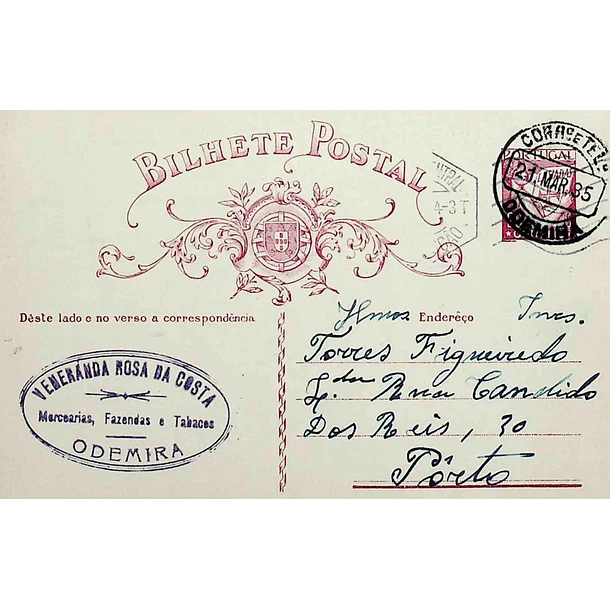 BILHETE POSTAL
CORR. E TEL.
PORTUGAL
21 MAR 35
ODEMIRA
Dêste lado e no verso a correspondência
Endereço
Ilmos Snrs.
Torres Figueiredo
Lda Rua Candido
Dos Reis, 30
Pôrto
VENERANDA ROSA DA COSTA
Mercearias, Fazendas e Tabacos
ODEMIRA